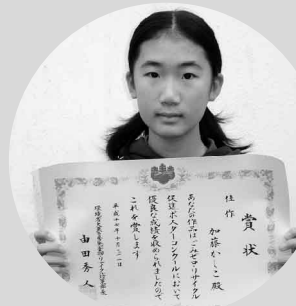 賞状
佳作
加藤かしこ殿
あなたの作品はごみゼロリサイクル
促進ポスターコンクールにおいて
優良な成績を収められましたので
これを賞します
平成十七年十月二一日
由田秀人